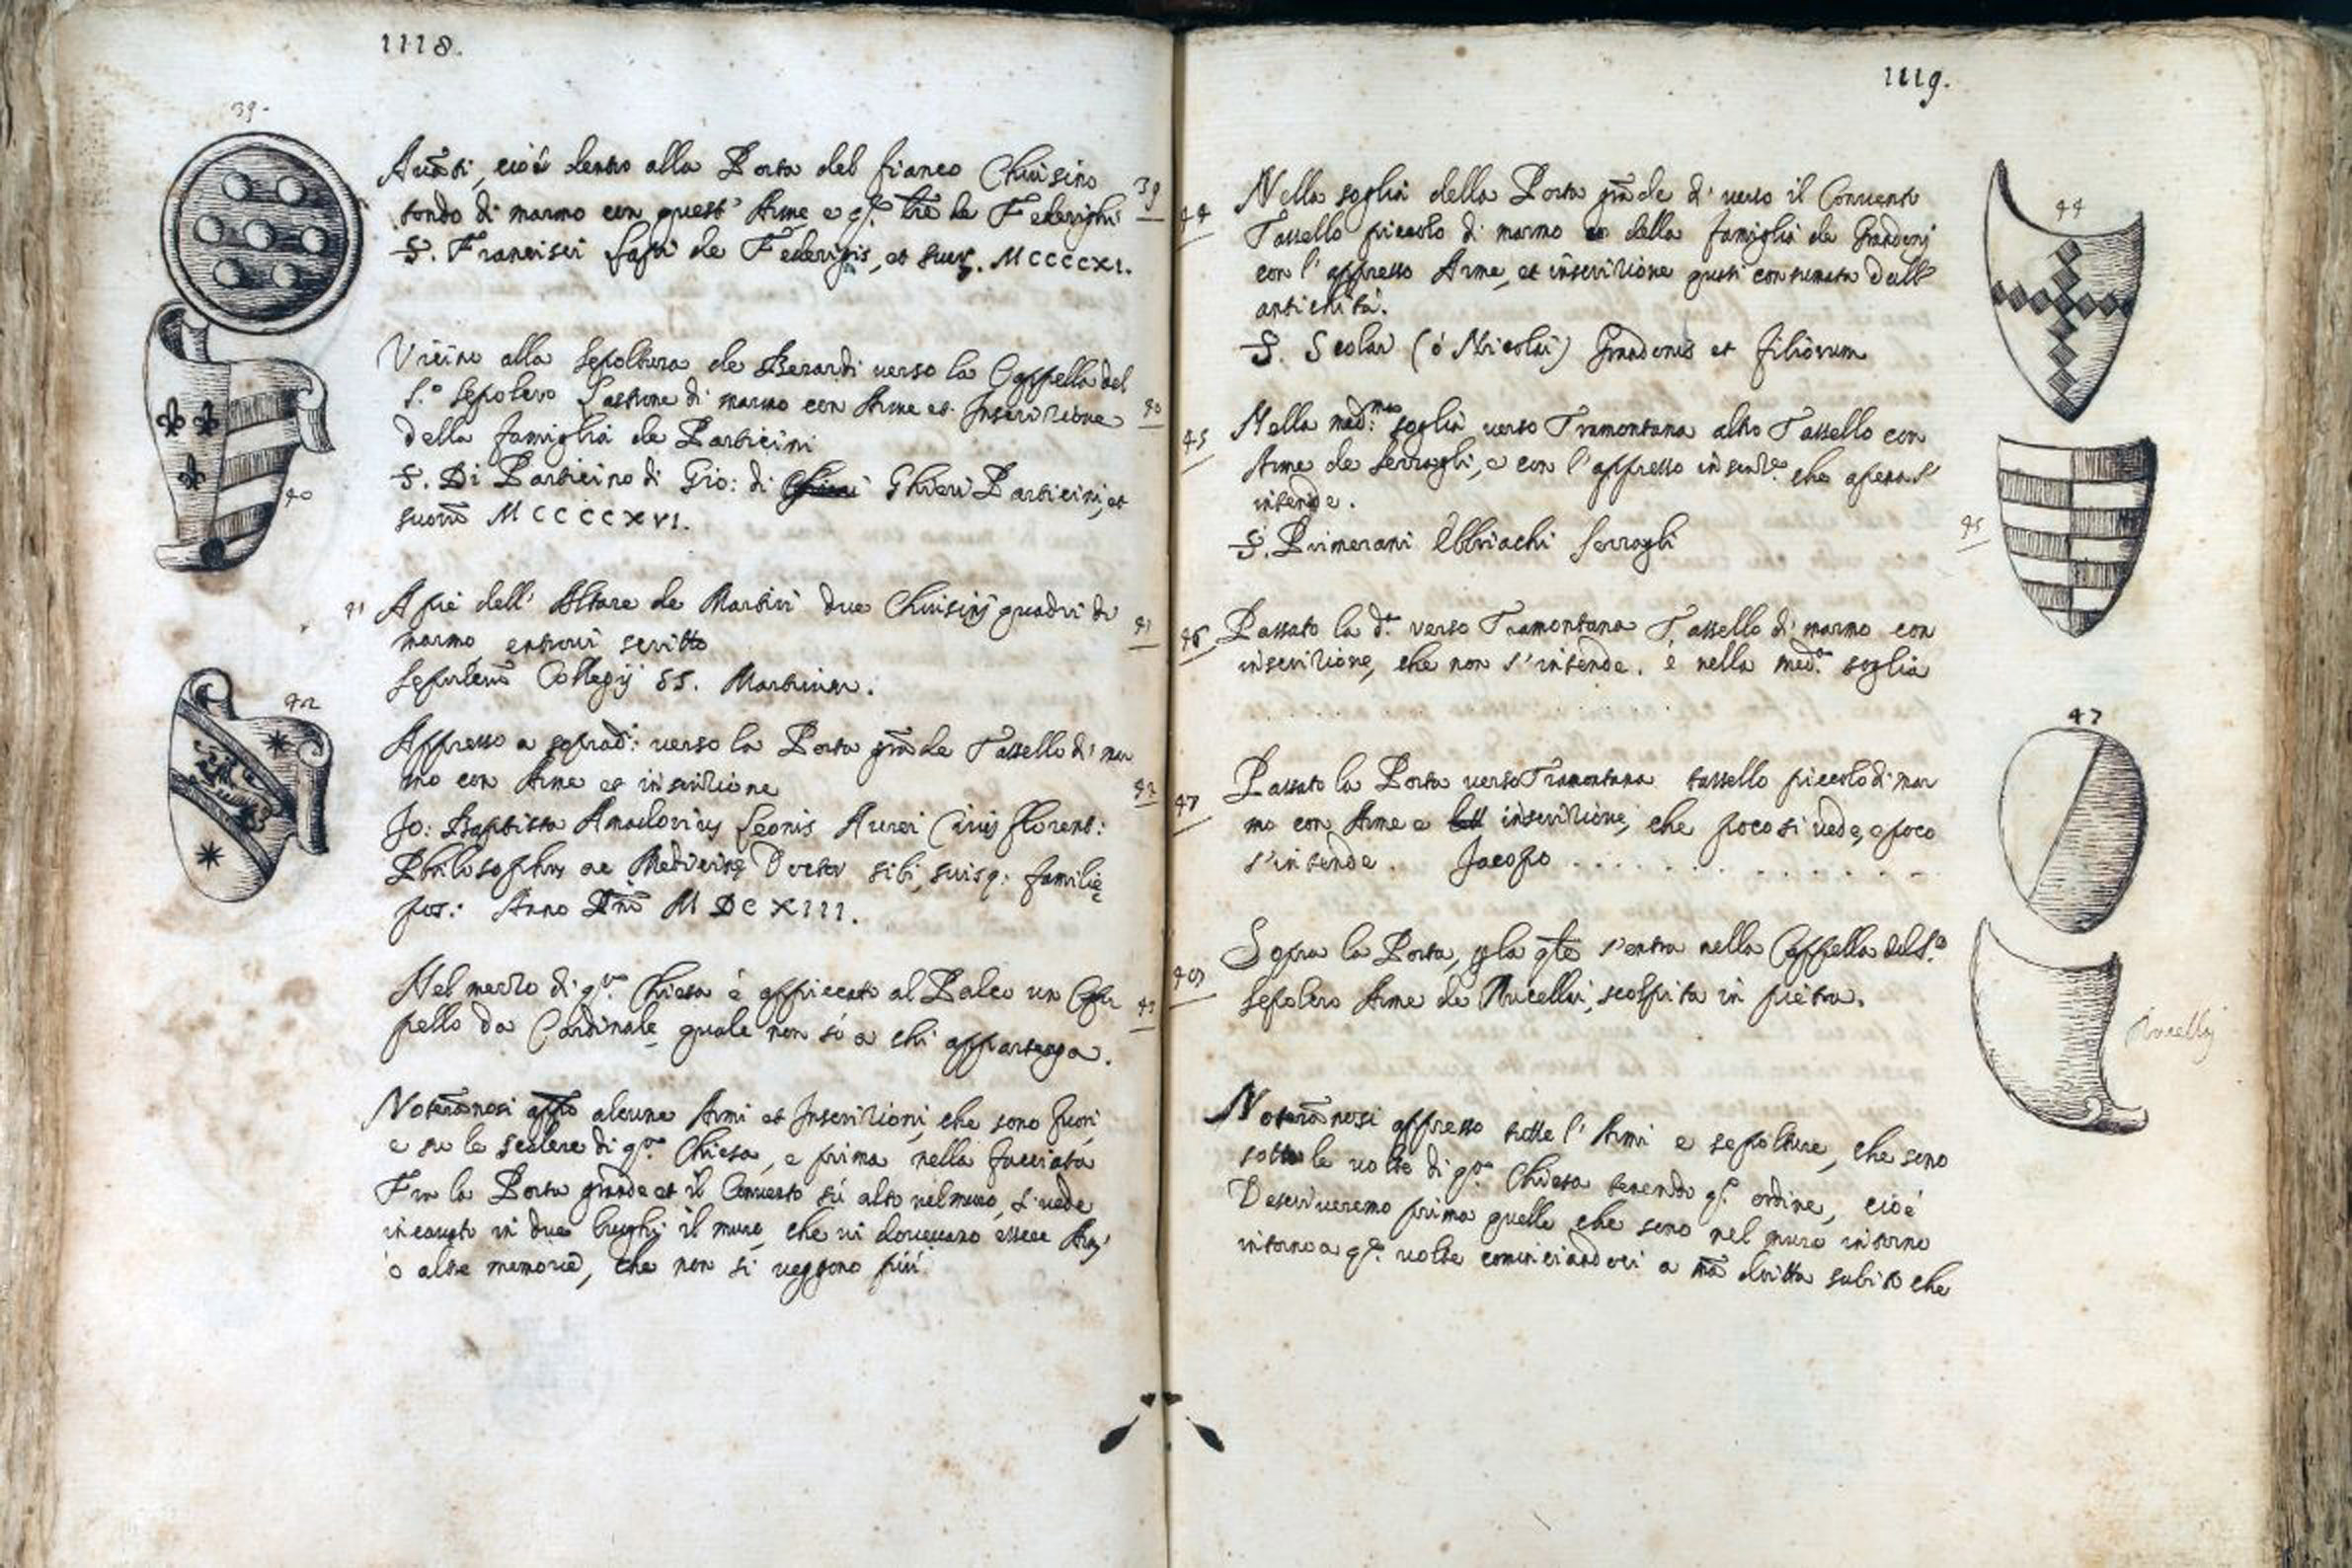 1118.
39.
Auãti, cioè dentro alla Porta del fianco Chiusino
tondo di marmo con quest' Arme e qs. lrẽ de Federighi
39
S. Francisci Lapi de Federigis, et suor. MCCCCXI.
Vicino alla sepoltura de Berardi verso la Cappella del
S.o Sepolcro Lastrone di marmo con Arme et Inscrizione
40
della famiglia de Particini
S. Di Particino di Gio: di Ghieri Particini, et
40
suorũ MCCCCXVI.
41
A piè dell' Altare de Martiri due Chiusinj quadri di
marmo, entrovi scritto
41
Sepulcrũ Collegij SS. Martirum.
42
Appresso a soprad.i verso la Porta grãde Tassello di mar
mo con Arme et inscrizione
42
Jo: Baptista Amadorius Leonis Aurei Civis florent:
Philosophus ac Medicinę Doctor sibi, suisq: familię
pos: Anno Dñi MDCXIII.
Nel mezzo di q.ta Chiesa è appiccato al Palco un Cap
43
pello da Cardinale, quale non sò a chi appartenga.
Noterãnosi appo alcune Armi et Inscrizioni, che sono fuori
e su le scalere di q.ta Chiesa, e prima nella facciata
Fra la Porta grande et il Convento sù alto nel muro, si vede
incavato in due luoghi il muro, che vi dovevano essere Armj
ò altre memorie, che non si veggono più
1119.
44
Nella soglia della Porta grãde di verso il Convento
44
Tassello piccolo di marmo della famiglia de Grandonj
con l'appresso Arme, et inscrizione quasi consumata dall'
antichità.
S. Scolai (ò Nicolai) Grandonis et filiorum
Nella med.ma soglia verso Tramontana altro Tassello con
45
Arme de Serragli, e con l'appresso inscriz.e che apena s'
intende.
45
S. Primerani Ebbriachi Serragli
46
Passato la d.a verso Tramontana Tassello di marmo con
inscrizione, che non s'intende. è nella med.a soglia
47
Passato la Porta verso Tramontana tassello piccolo di mar
47
mo con Arme e inscrizione, che poco si vede, e poco
s'intende. Jacopo . . . . . . . . . . . .
Sopra la Porta, p la qle s'entra nella Cappella del S.o
Sepolcro Arme de Rucellai, scolpita in pietra.
Rucellaj
Noterãnosi appresso tutte l'Armi e sepolture, che sono
sotto le volte di q.ta Chiesa tenendo qs. ordine, cioè
Descriveremo prima quelle che sono nel muro intorno
intorno a q.e volte cominciandoci a mã dritta subito che